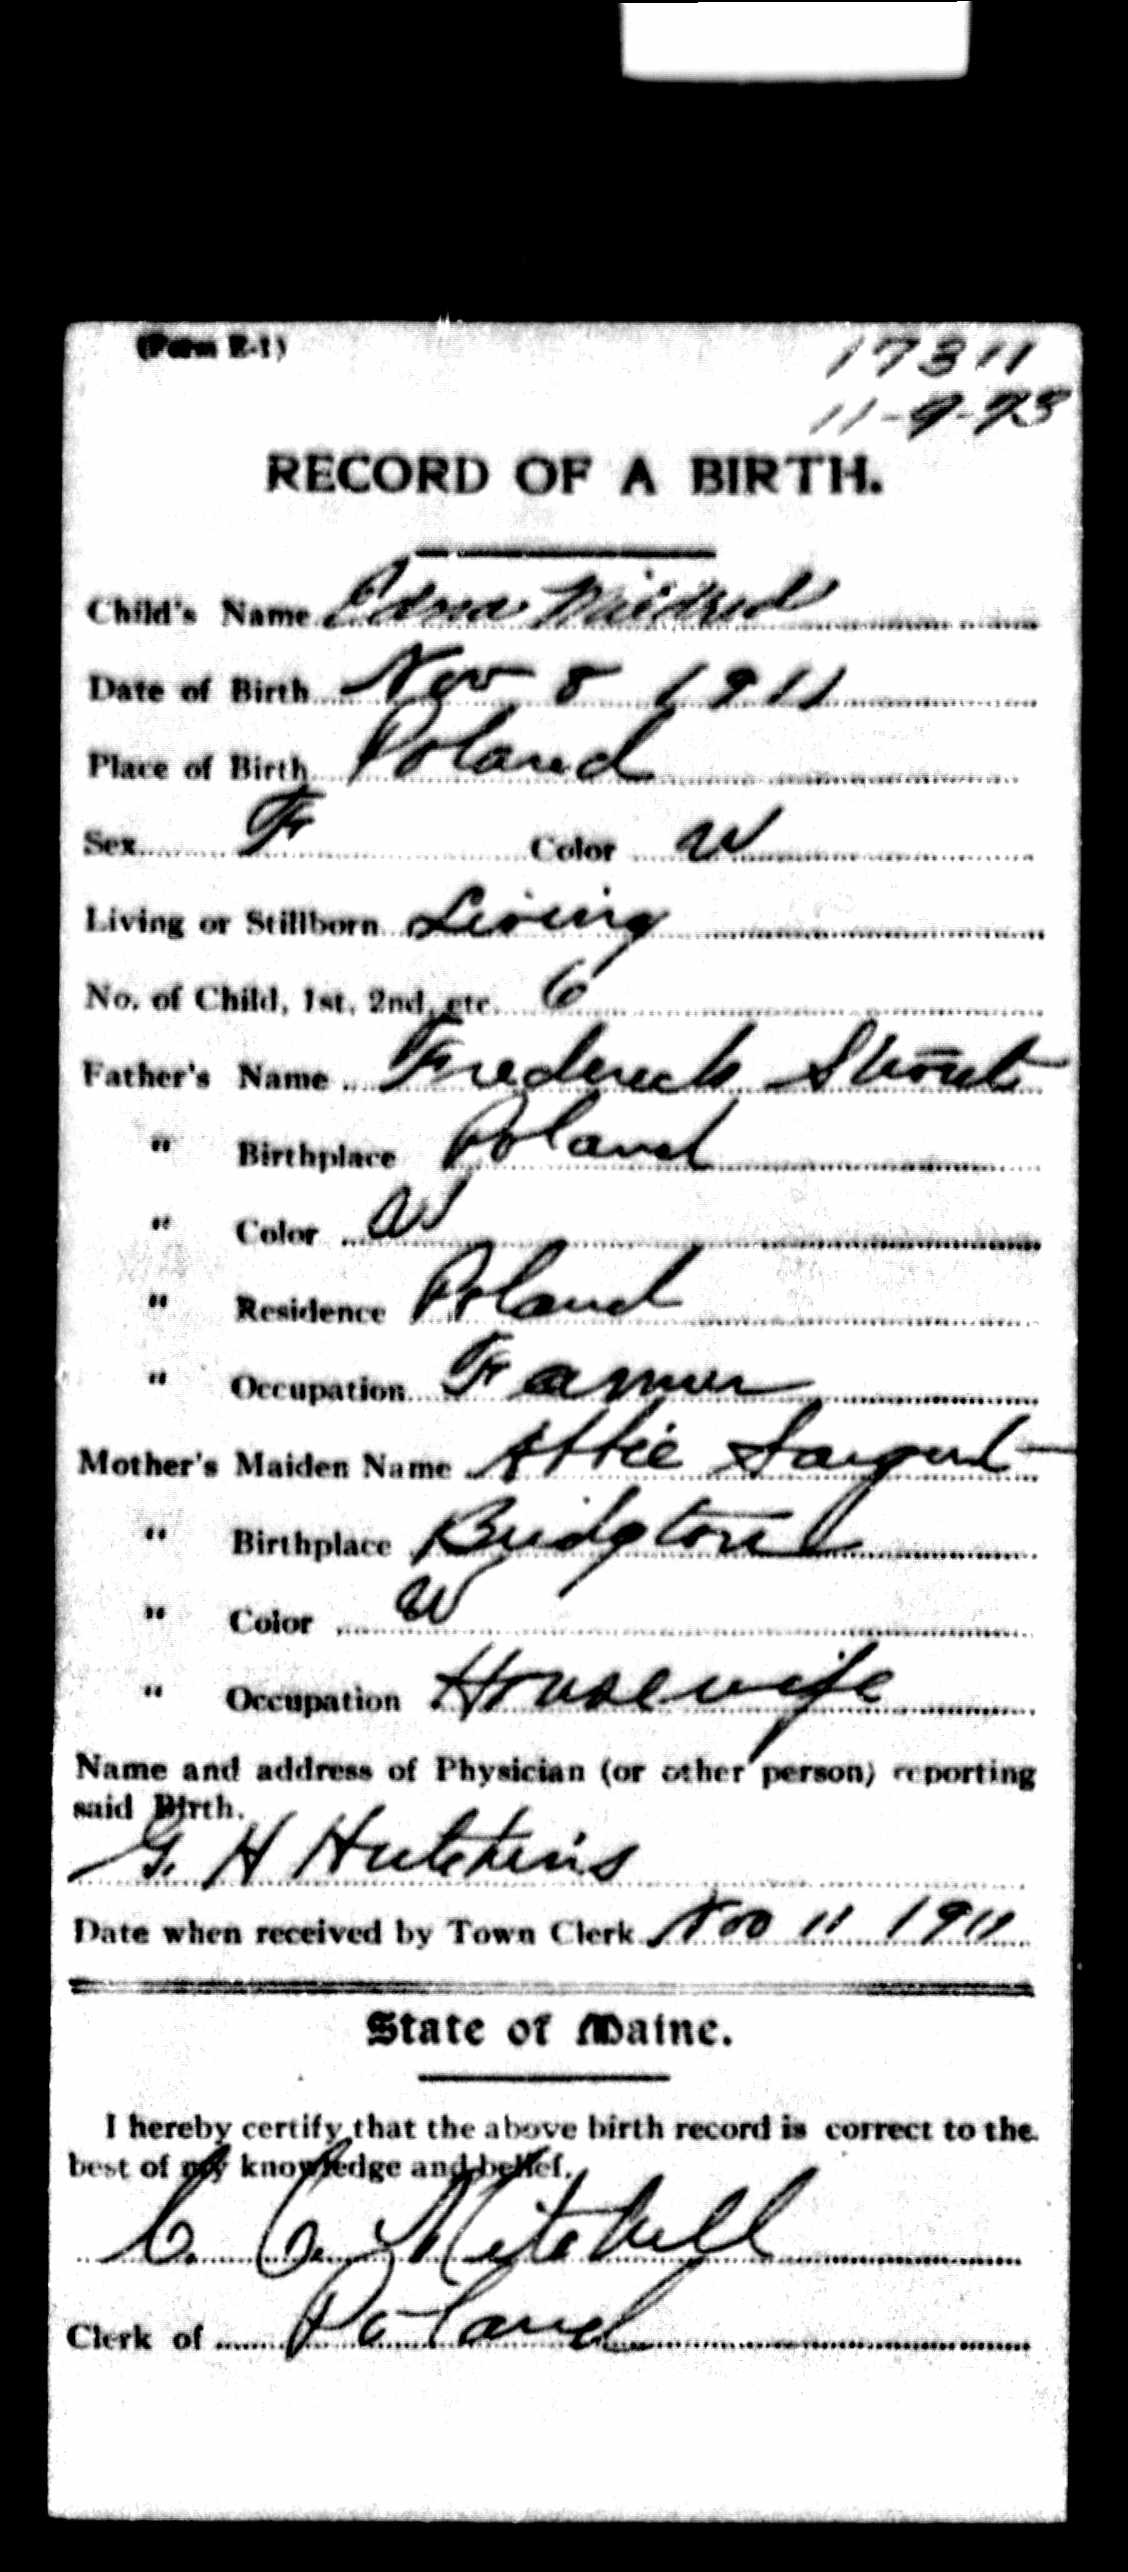 (Form R-1)
17311
11-9-73
RECORD OF A BIRTH.
Child's Name Edna Mildred
Date of Birth Nov 8 1911
Place of Birth Poland
Sex F Color W
Living or Stillborn Living
No. of Child, 1st, 2nd, etc. 6
Father's Name Frederick Strout
" Birthplace Poland
" Color W
" Residence Poland
" Occupation Farmer
Mother's Maiden Name Attie Sargent
" Birthplace Bridgton
" Color W
" Occupation Housewife
Name and address of Physician (or other person) reporting
said Birth.
G. H Hutchins
Date when received by Town Clerk Nov 11 1911
State of Maine.
I hereby certify that the above birth record is correct to the
best of my knowledge and belief.
Mitchell
Clerk of Poland